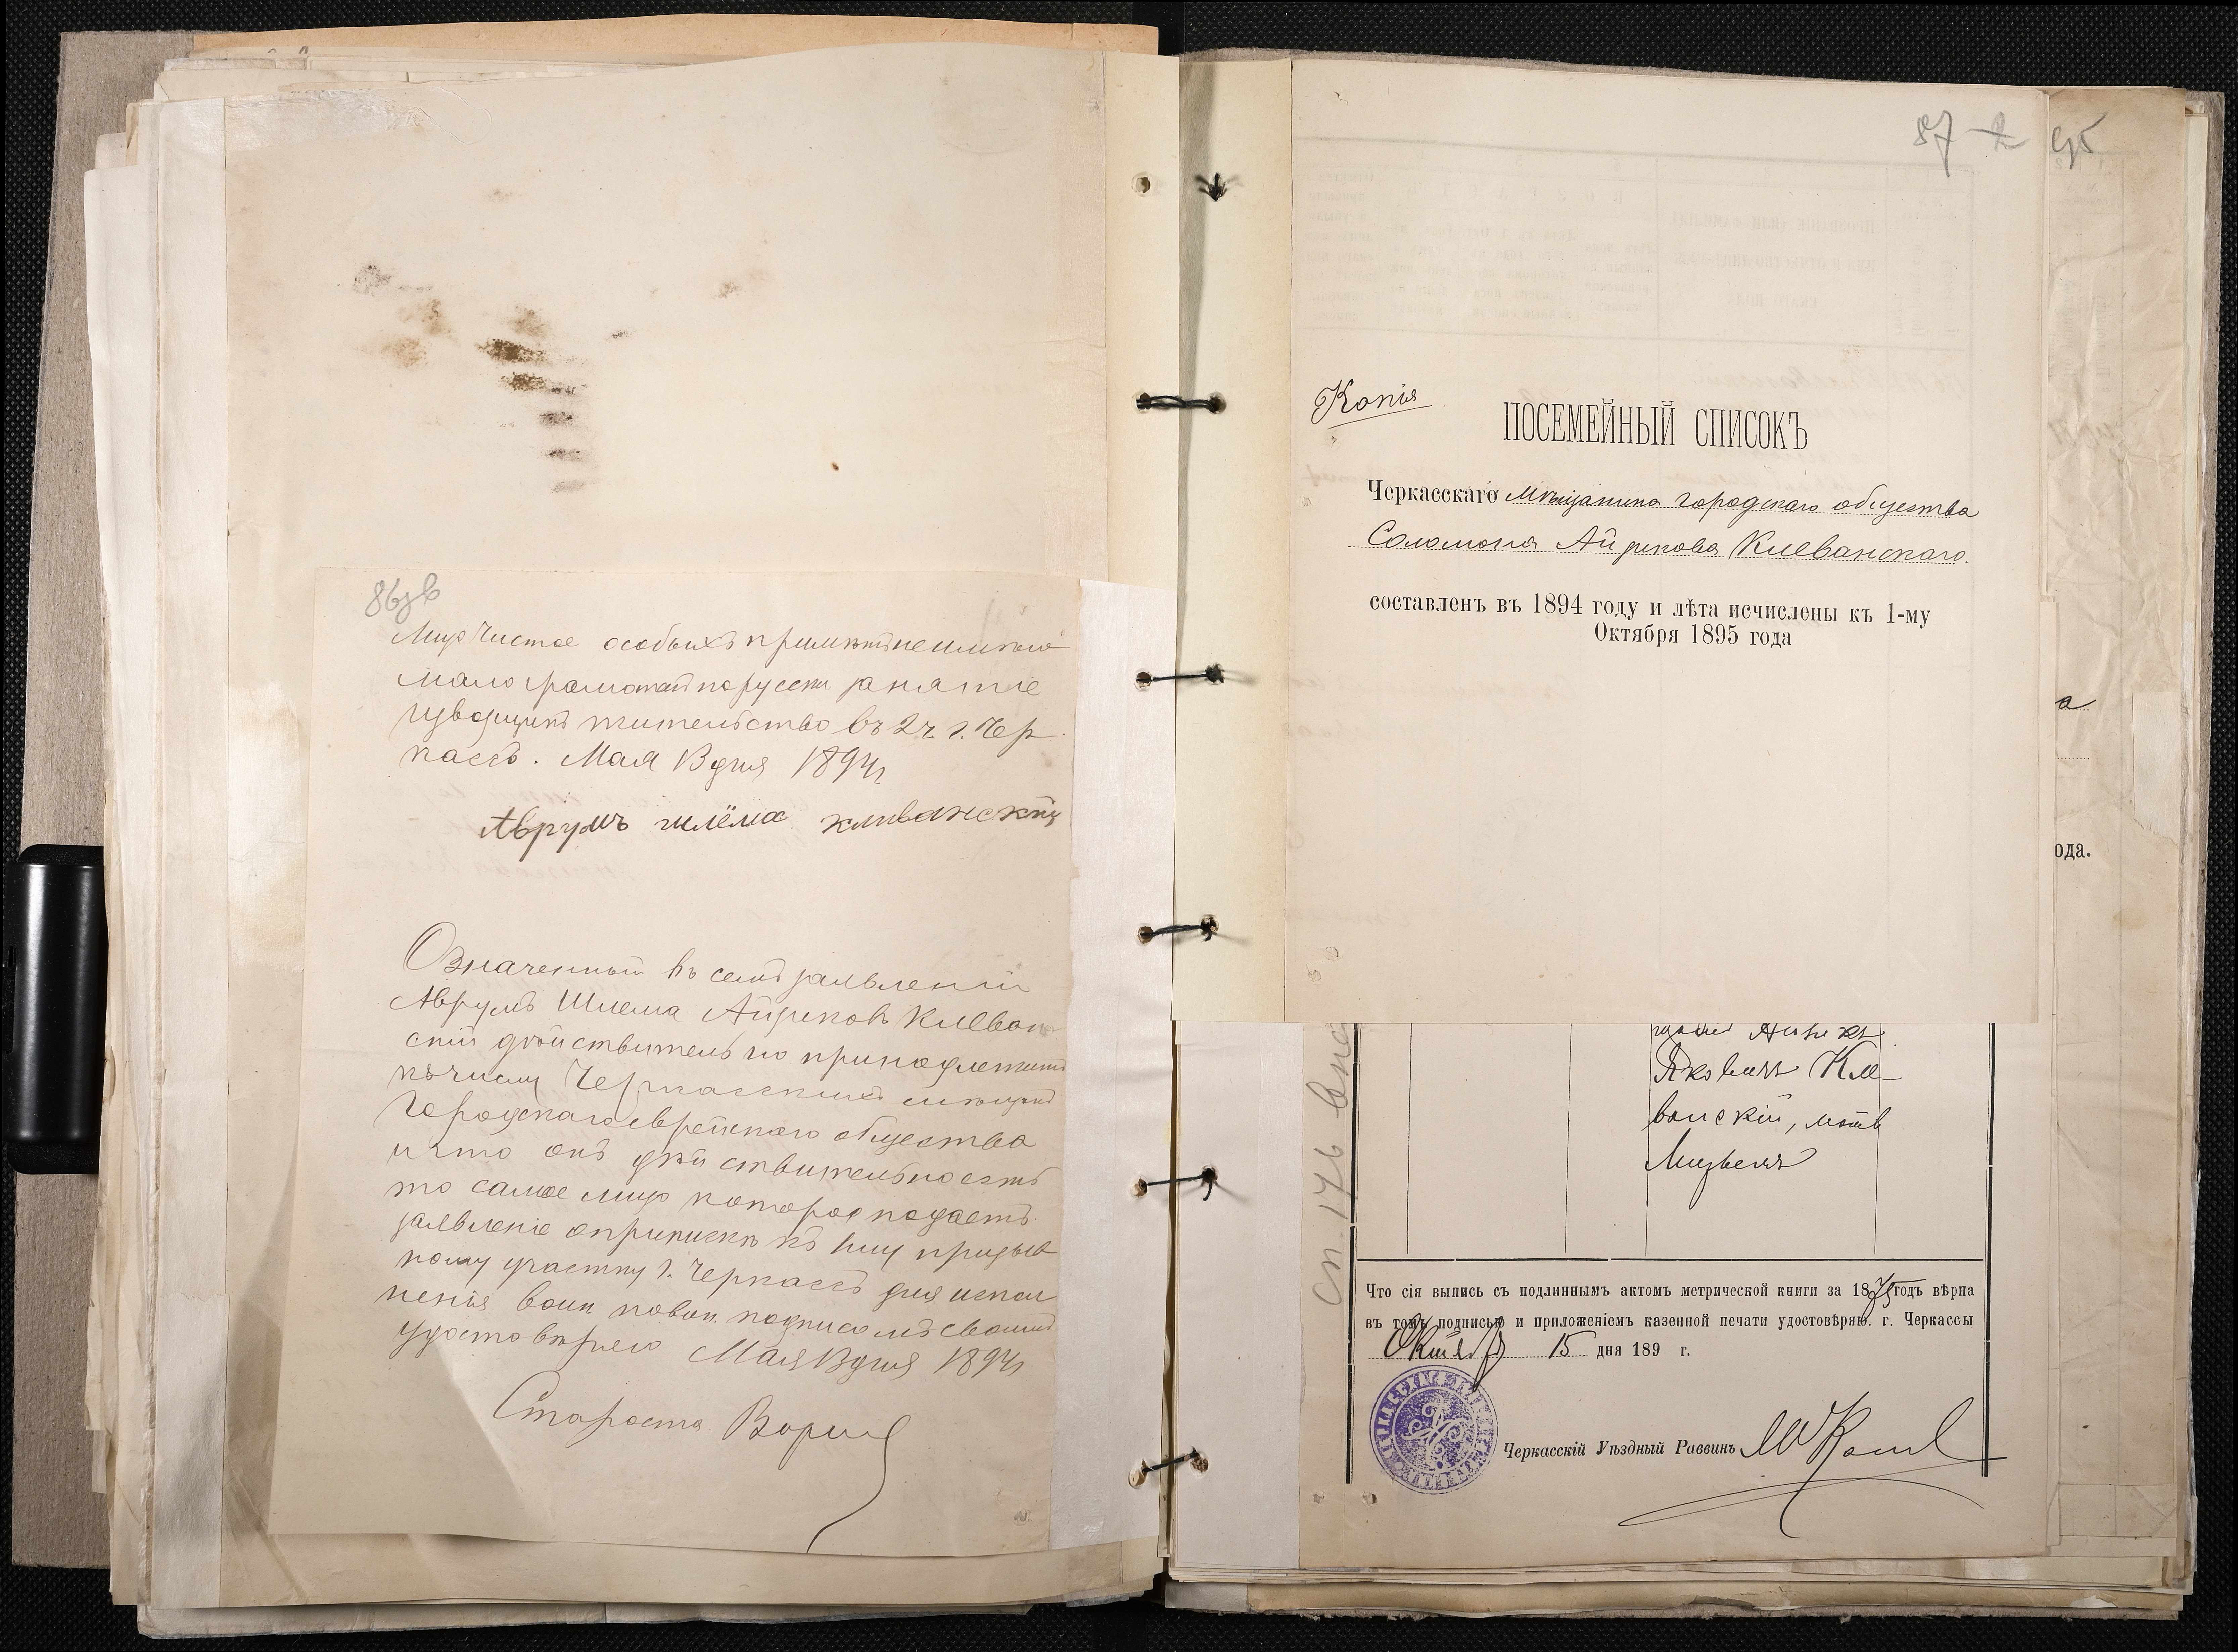 86зв
Лицо чистое особыхъ приметъ не имѣю
мало грамотный по русски занятие
извощикъ жительство въ 2 ч. г. Чер
кассъ. Мая 13 дня 1894 г
Аврумъ шлёма кливанскій
Означенный въ семъ заявленіи
Аврумъ Шлема Айзиковъ Клеван
скій дѣйствительно принадлежитъ
къ числу Черкасскихъ мѣщанъ
Городскаго еврейскаго общества
и что онъ дѣйствительно есть
то самое лицо которое подаетъ
заявленіе о припискѣ къ призыв
ному участку г. Черкассъ для испол
ненія воин повин. подписомъ своимъ
удостовѣряю Мая 13 дня 1894 г
Староста
87 2 95
Копія
ПОСЕМЕЙНЫЙ СПИСОКЪ
Черкасскаго мѣщанина городскаго общества
Соломона Айзикова Клеванскаго.
составленъ въ 1894 году и лѣта исчислены къ 1-му
Октября 1895 года
а
ода.
Айзикъ
Яковлевъ Кле-
ванскій, мать
сп. 176
Что сія выпись съ подлиннымъ актомъ метрической книги за 1875 годъ вѣрна
въ томъ подписью и приложеніемъ казенной печати удостовѣряю. г. Черкассы
15 дня 189 г.
Черкасскій Уѣздный Раввинъ